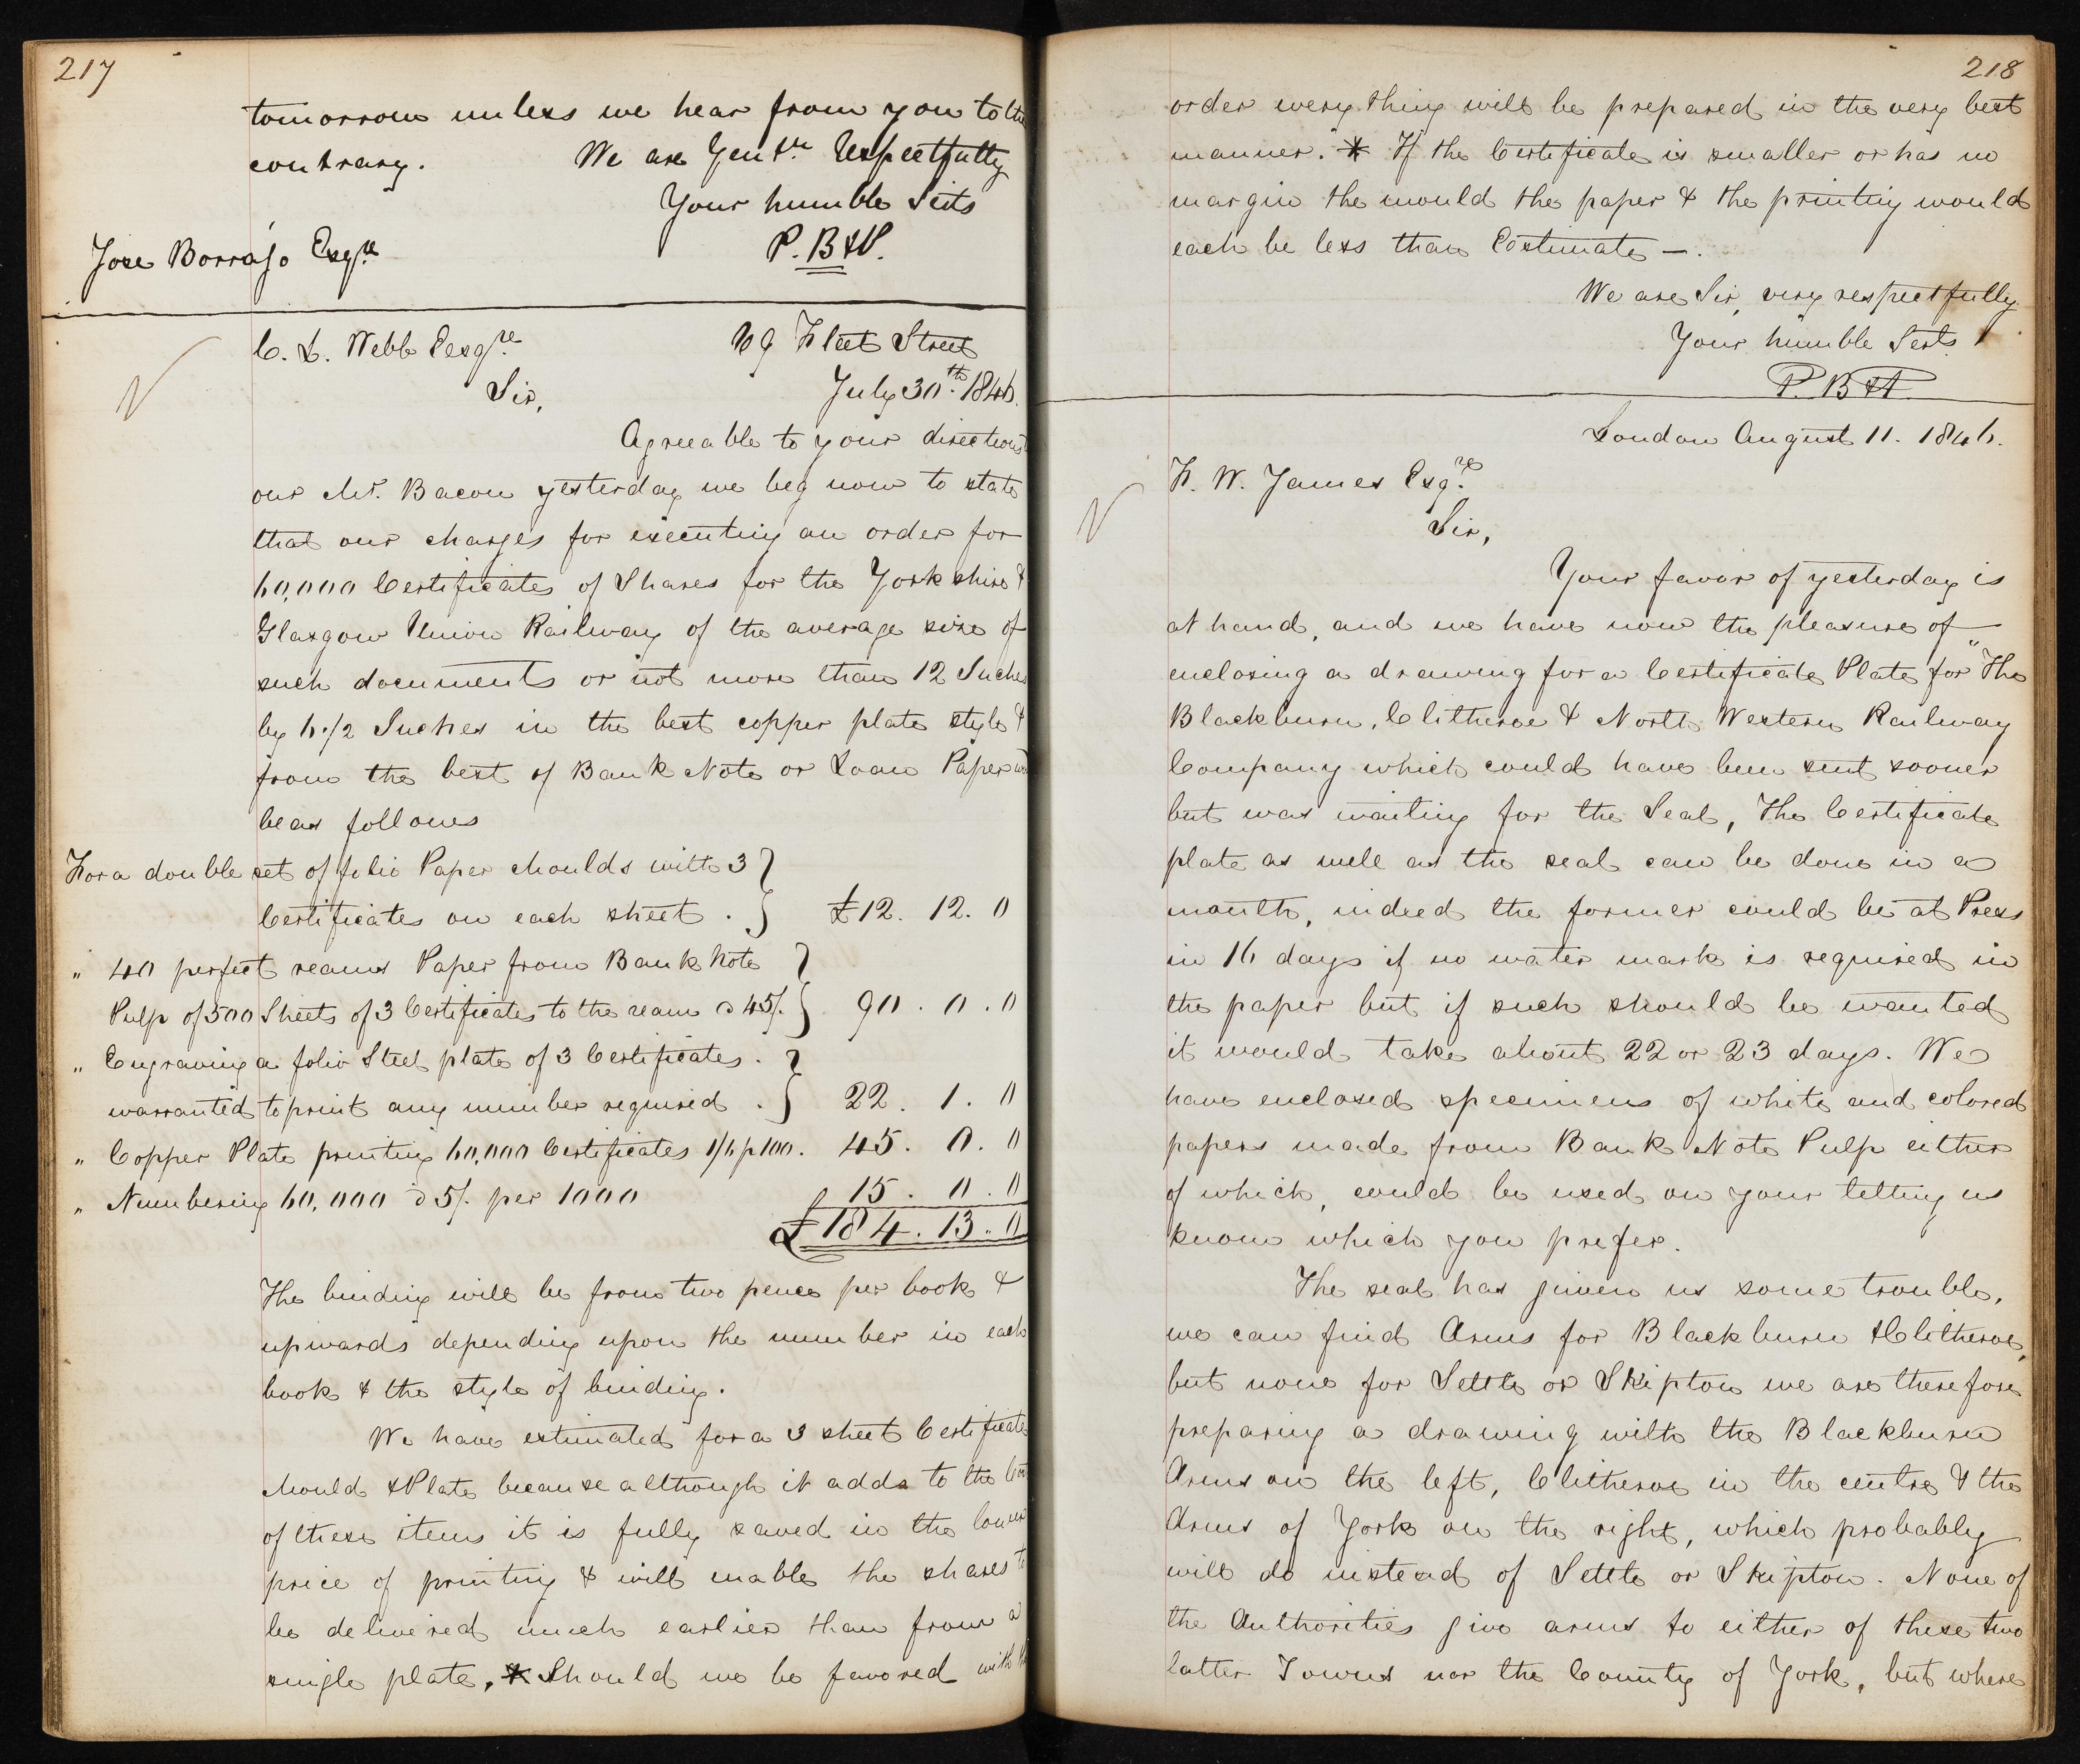 217
tomorrow unless we hear from you to the
contrary. We are Gentn. Respectfully
Your humble Serts
P. B & P.
Jose Borrajo Esqre
C. L. Webb Esqre. 69 Fleet Street
Sir, July 30th. 1846.
Agreeable to your directions
our Mr. Bacon yesterday we beg now to state
that our charges for executing an order for
60,000 Certificates of Shares for the Yorkshire &
Glasgow Union Railway of the average size of
such documents or not more than 12 Inches
by 6 1/2 Inches in the best copper plate style &
from the best of Bank Note or Loan Paper
be as follows
For a double set of folio Paper Moulds with 3
Certificates on each sheet . £12. 12. 0
" 40 perfect reams Paper from Bank Note
Pulp of 500 Sheets of 3 Certificates to the ream @ 45/. 90 . 0 . 0
" Engraving a folio Steel plate of 3 Certificates .
warranted to print any number required . 22 . 1 . 0
" Copper Plate printing 60,000 Certificates 1/6 p 100. 45 . 0 . 0
" Numbering 60,000 @ 5/. per 1000 15 . 0 . 0
£184. 13. 0
The binding will be from two pence per book &
upwards depending upon the number in each
book & the style of binding.
We have estimated for a 3 sheet Certificate
Mould & Plate because although it adds to the Cost
of these items it is fully saved in the lower
price of printing & will enable the shares to
be delivered much earlier than from a
single plate, * Should we be favored with the
218
order every thing will be prepared in the very best
manner. * If the Certificate is smaller or has no
margin the mould the paper & the printing would
each be less than Eestimate —.
We are Sir, very respectfully
Your humble Serts
P. B & P.
London August 11. 1846.
F. W. James Esqre.
Sir,
Your favor of yesterday is
at hand, and we have now the pleasure of
enclosing a drawing for a Certificate Plate for "The
Blackburn, Clitheroe & North Western Railway
Company which could have been sent sooner
but was waiting for the Seal, The Certificate
plate as well as the seal can be done in a
month, indeed the former could be at Press
in 16 days if no water mark is required in
the paper but if such should be wanted
it would take about 22 or 23 days. We
have enclosed specimens of white and colored
papers made from Bank Note Pulp either
of which, could be used on your letting us
know which you prefer.
The seal has given us some trouble,
we can find Arms for Blackburn & Clitheroe,
but none for Settle or Skipton we are therefore
preparing a drawing with the Blackburn
Arms on the left, Clitheroe in the centre & the
Arms of York on the right, which probably
will do instead of Settle or Skipton. None of
the Authorities give arms to either of these two
latter Towns nor the County of York, but where